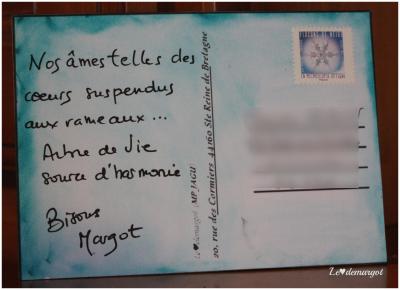 Nos âmes telles des
cœurs suspendus
aux rameaux...
Arbre de Vie
source d'harmonie
Bisous
Margot
Le♥demargot (MP JAGU)
20, rue des Cormiers 44160 Ste Reine de Bretagne
Le♥demargot